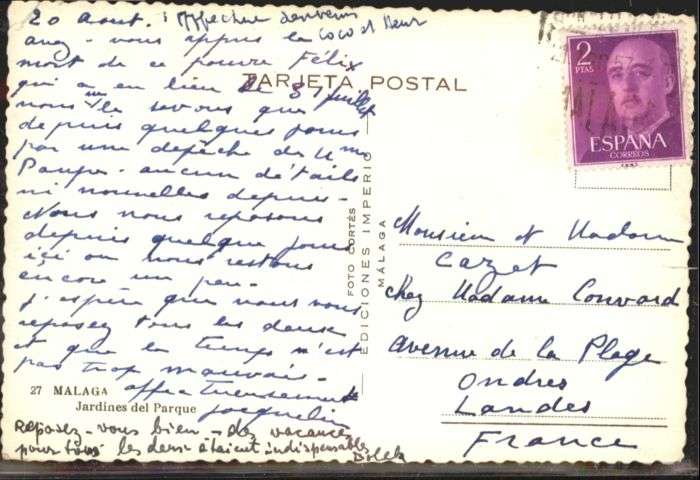 20 Aout. Affectueux souvenirs
Coco et
avez-vous appris la
mort de ce pauvre Félix
qui a eu lieu le 3 juillet
nous ne le savons que
depuis quelques jours
par une dépêche de
aucun détails
ni nouvelles depuis-
Nous nous reposons
depuis quelques jours
ici où nous restons
encore un peu-
J'espère que vous vous
reposez tous les deux
et que le temps n'est
pas trop mauvais-
affectueusement
Jacqueline
Reposez-vous bien - des vacances
pour tous les deux étaient indispensables
TARJETA POSTAL
27 MALAGA
Jardines del Parque
FOTO CORTÉS
EDICIONES IMPERIO
MÁLAGA
2
PTAS
ESPAÑA
CORREOS
MALA
Monsieur et Madame
Cazet
chez Madame Convard
avenue de la Plage
Ondres
Landes
France